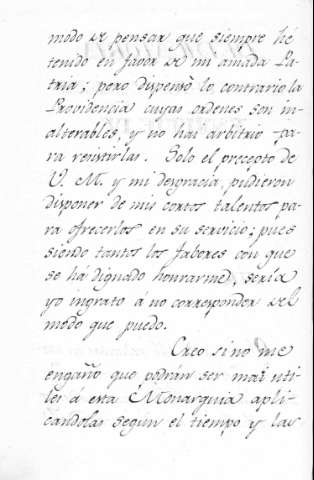 modo de pensar que siempre hé
tenido en favor de mi amada Pa-
tria; pero dispensó lo contrario la
Providencia cuyas ordenes son in-
alterables, y no hai arbitrio pa-
ra resistirlas. Solo el precepto de
V. M. y mi desgracia, pudieron
disponer de mis cortos talentos pa-
ra ofrecerlos en su servicio; pues
siendo tantos los fabores con que
se há dignado honrarme, sería
yo ingrato á no corresponder del
modo que puedo.
Creo si no me
engaño que podrán ser mas uti-
les á esta Monarquia apli-
candolas según el tiempo y las